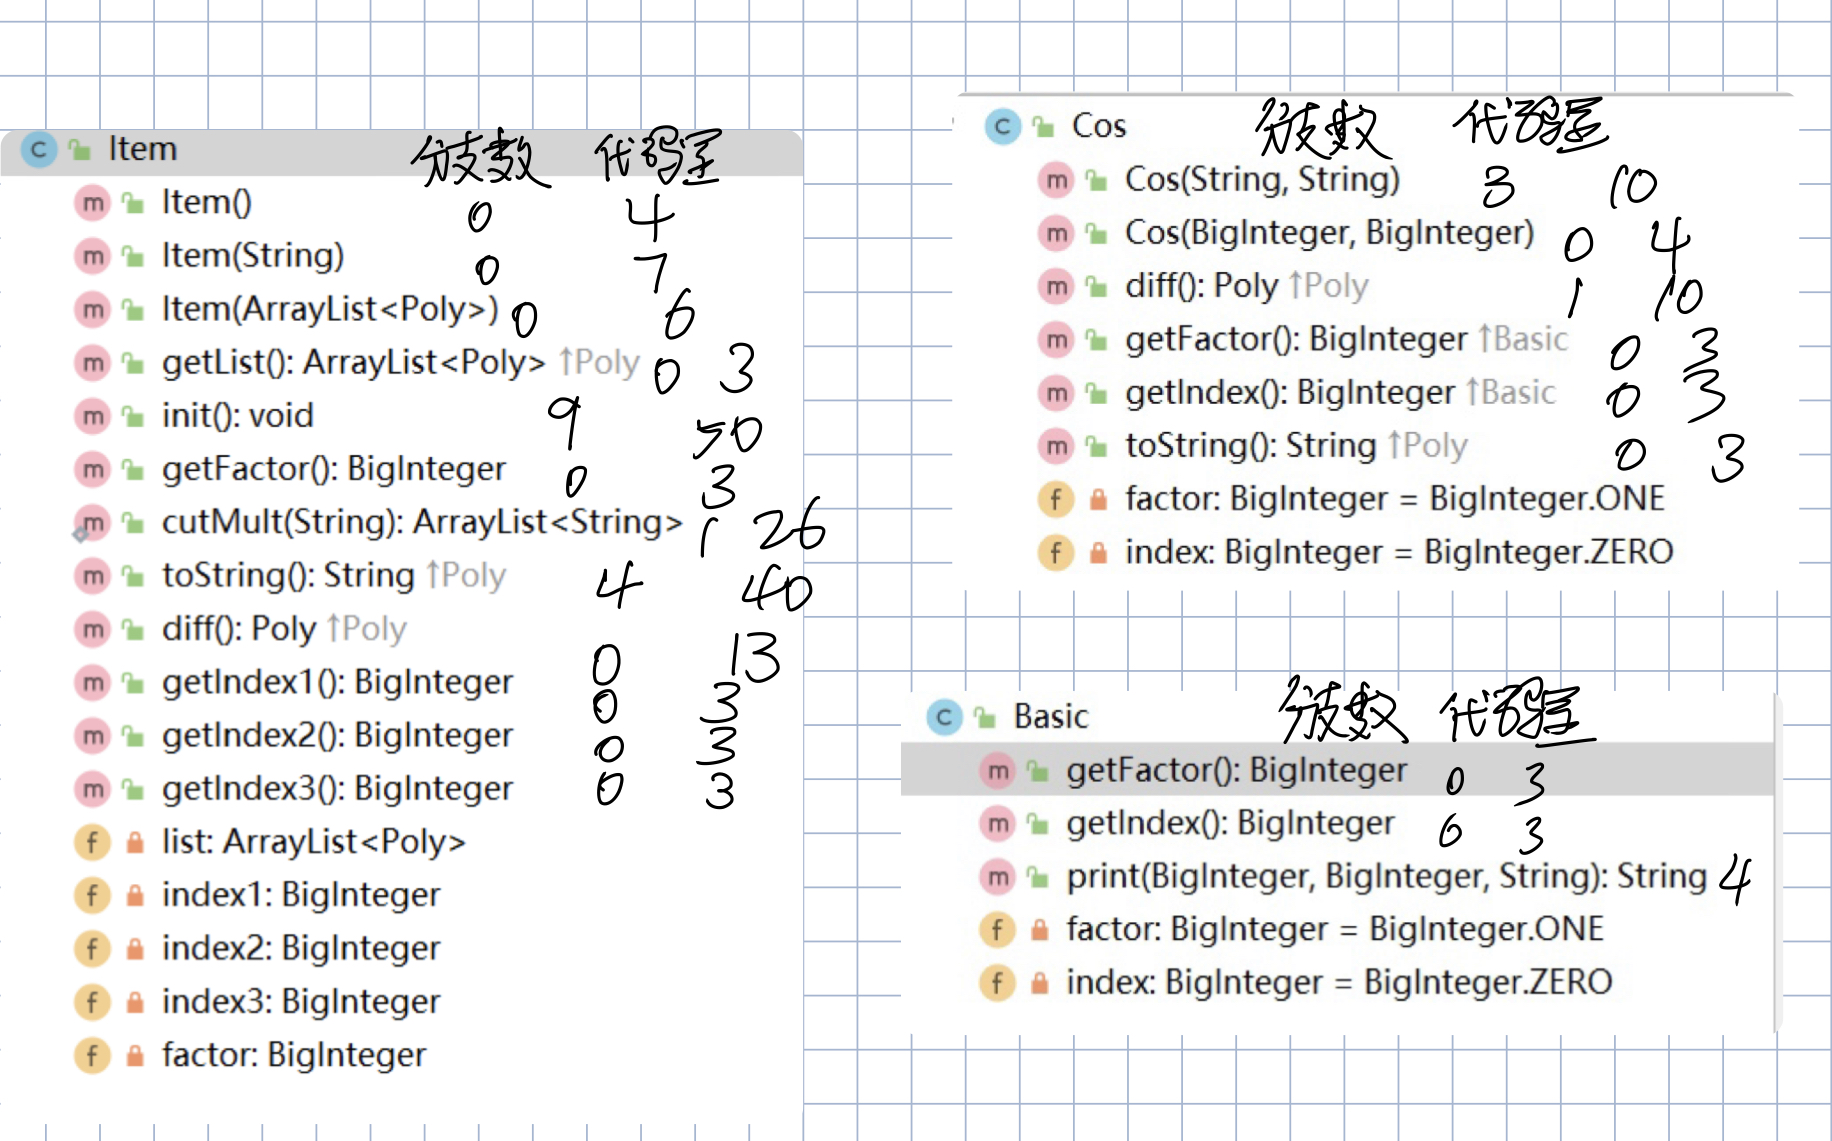 Item 分支数 代码量
Item() 0 4
Item(String) 0 7
Item(ArrayList<Poly>) 0 6
getList(): ArrayList<Poly> ↑Poly 0 3
init(): void 9 50
getFactor(): BigInteger 0 3
cutMult(String): ArrayList<String> 1 26
toString(): String ↑Poly 4 40
diff(): Poly ↑Poly 0 13
getIndex1(): BigInteger 0 3
getIndex2(): BigInteger 0 3
getIndex3(): BigInteger 0 3
list: ArrayList<Poly>
index1: BigInteger
index2: BigInteger
index3: BigInteger
factor: BigInteger
Cos 分支数 代码量
Cos(String, String) 3 10
Cos(BigInteger, BigInteger) 0 4
diff(): Poly ↑Poly 1 10
getFactor(): BigInteger ↑Basic 0 3
getIndex(): BigInteger ↑Basic 0 3
toString(): String ↑Poly 0 3
factor: BigInteger = BigInteger.ONE
index: BigInteger = BigInteger.ZERO
Basic 分支数 代码量
getFactor(): BigInteger 0 3
getIndex(): BigInteger 0 3
print(BigInteger, BigInteger, String): String 4
factor: BigInteger = BigInteger.ONE
index: BigInteger = BigInteger.ZERO